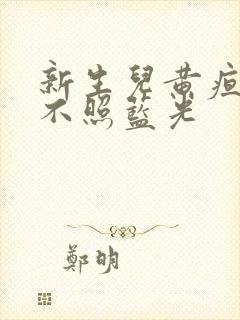 新生兒黃疸
不照藍光
鄭明